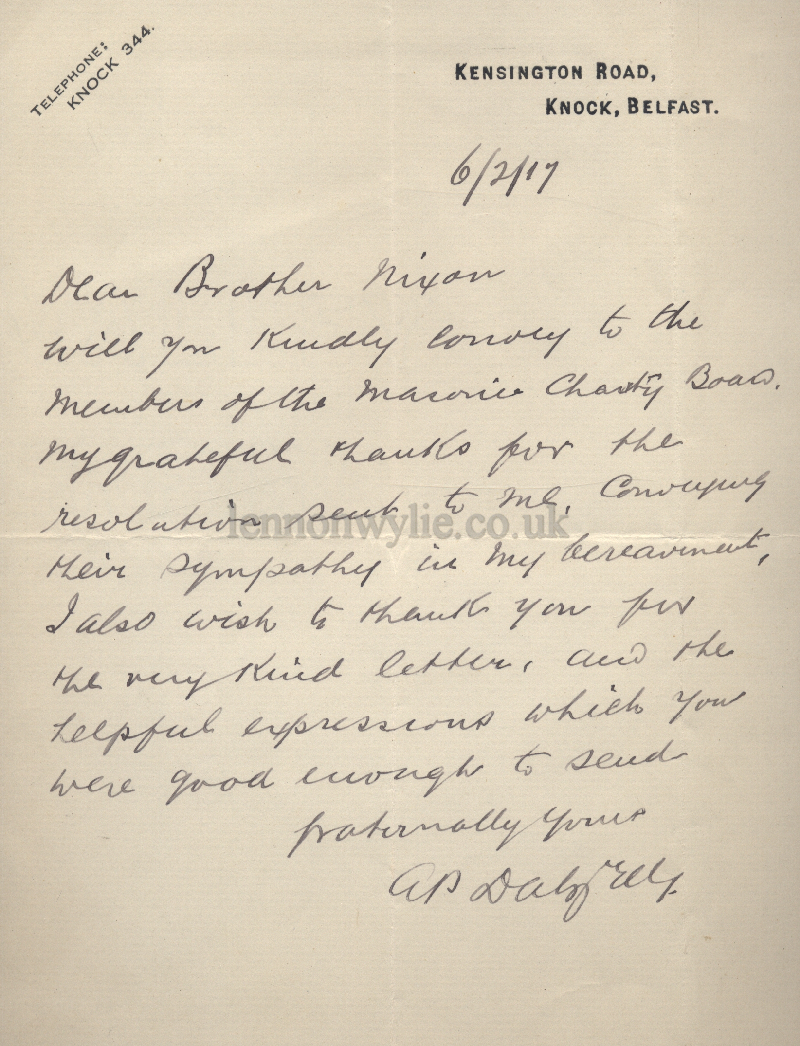 TELEPHONE:
KNOCK 344.
KENSINGTON ROAD,
KNOCK, BELFAST.
6/2/17
Dear Brother Nixon
will you Kindly convey to the
Members of the Masonic Charity Board.
My grateful thanks for the
resolution sent to me, Conveying
lennonwylie.co.uk
their sympathy in my bereavement,
I also wish to thank you for
the very Kind letter, and the
helpful expressions which you
were good enough to send
fraternally yours
AB